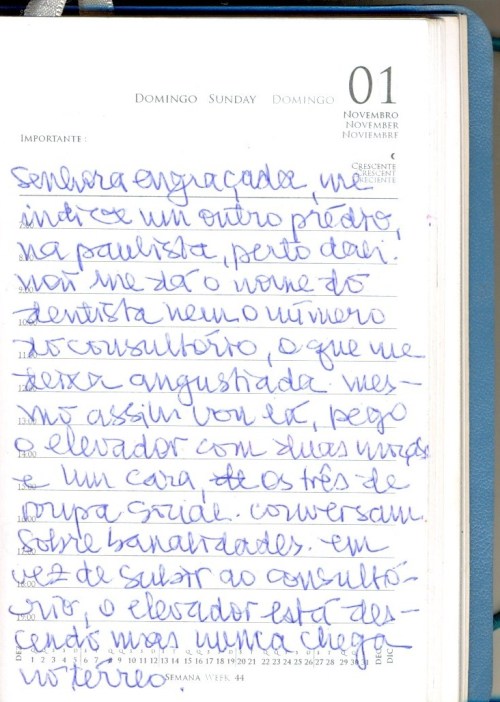 DOMINGO SUNDAY DOMINGO 01
NOVEMBRO
NOVEMBER
NOVIEMBRE
IMPORTANTE :
CRESCENTE
CRESCENT
CRECIENTE
senhora engraçada, me
indica um outro prédio,
na paulista, perto dali.
não me dá o nome do
dentista nem o número
do consultório, o que me
deixa angustiada. mes-
mo assim vou lá, pego
o elevador com duas moças
e um cara, os três de
roupa social. conversam
sobre banalidades. em
vez de subir ao consultó-
rio, o elevador está des-
cendo mas nunca chega
no térreo.
1 2 3 4 5 6 7 8 9 10 11 12 13 14 15 16 17 18 19 20 21 22 23 24 25 26 27 28 29 30 31
SEMANA WEEK 44